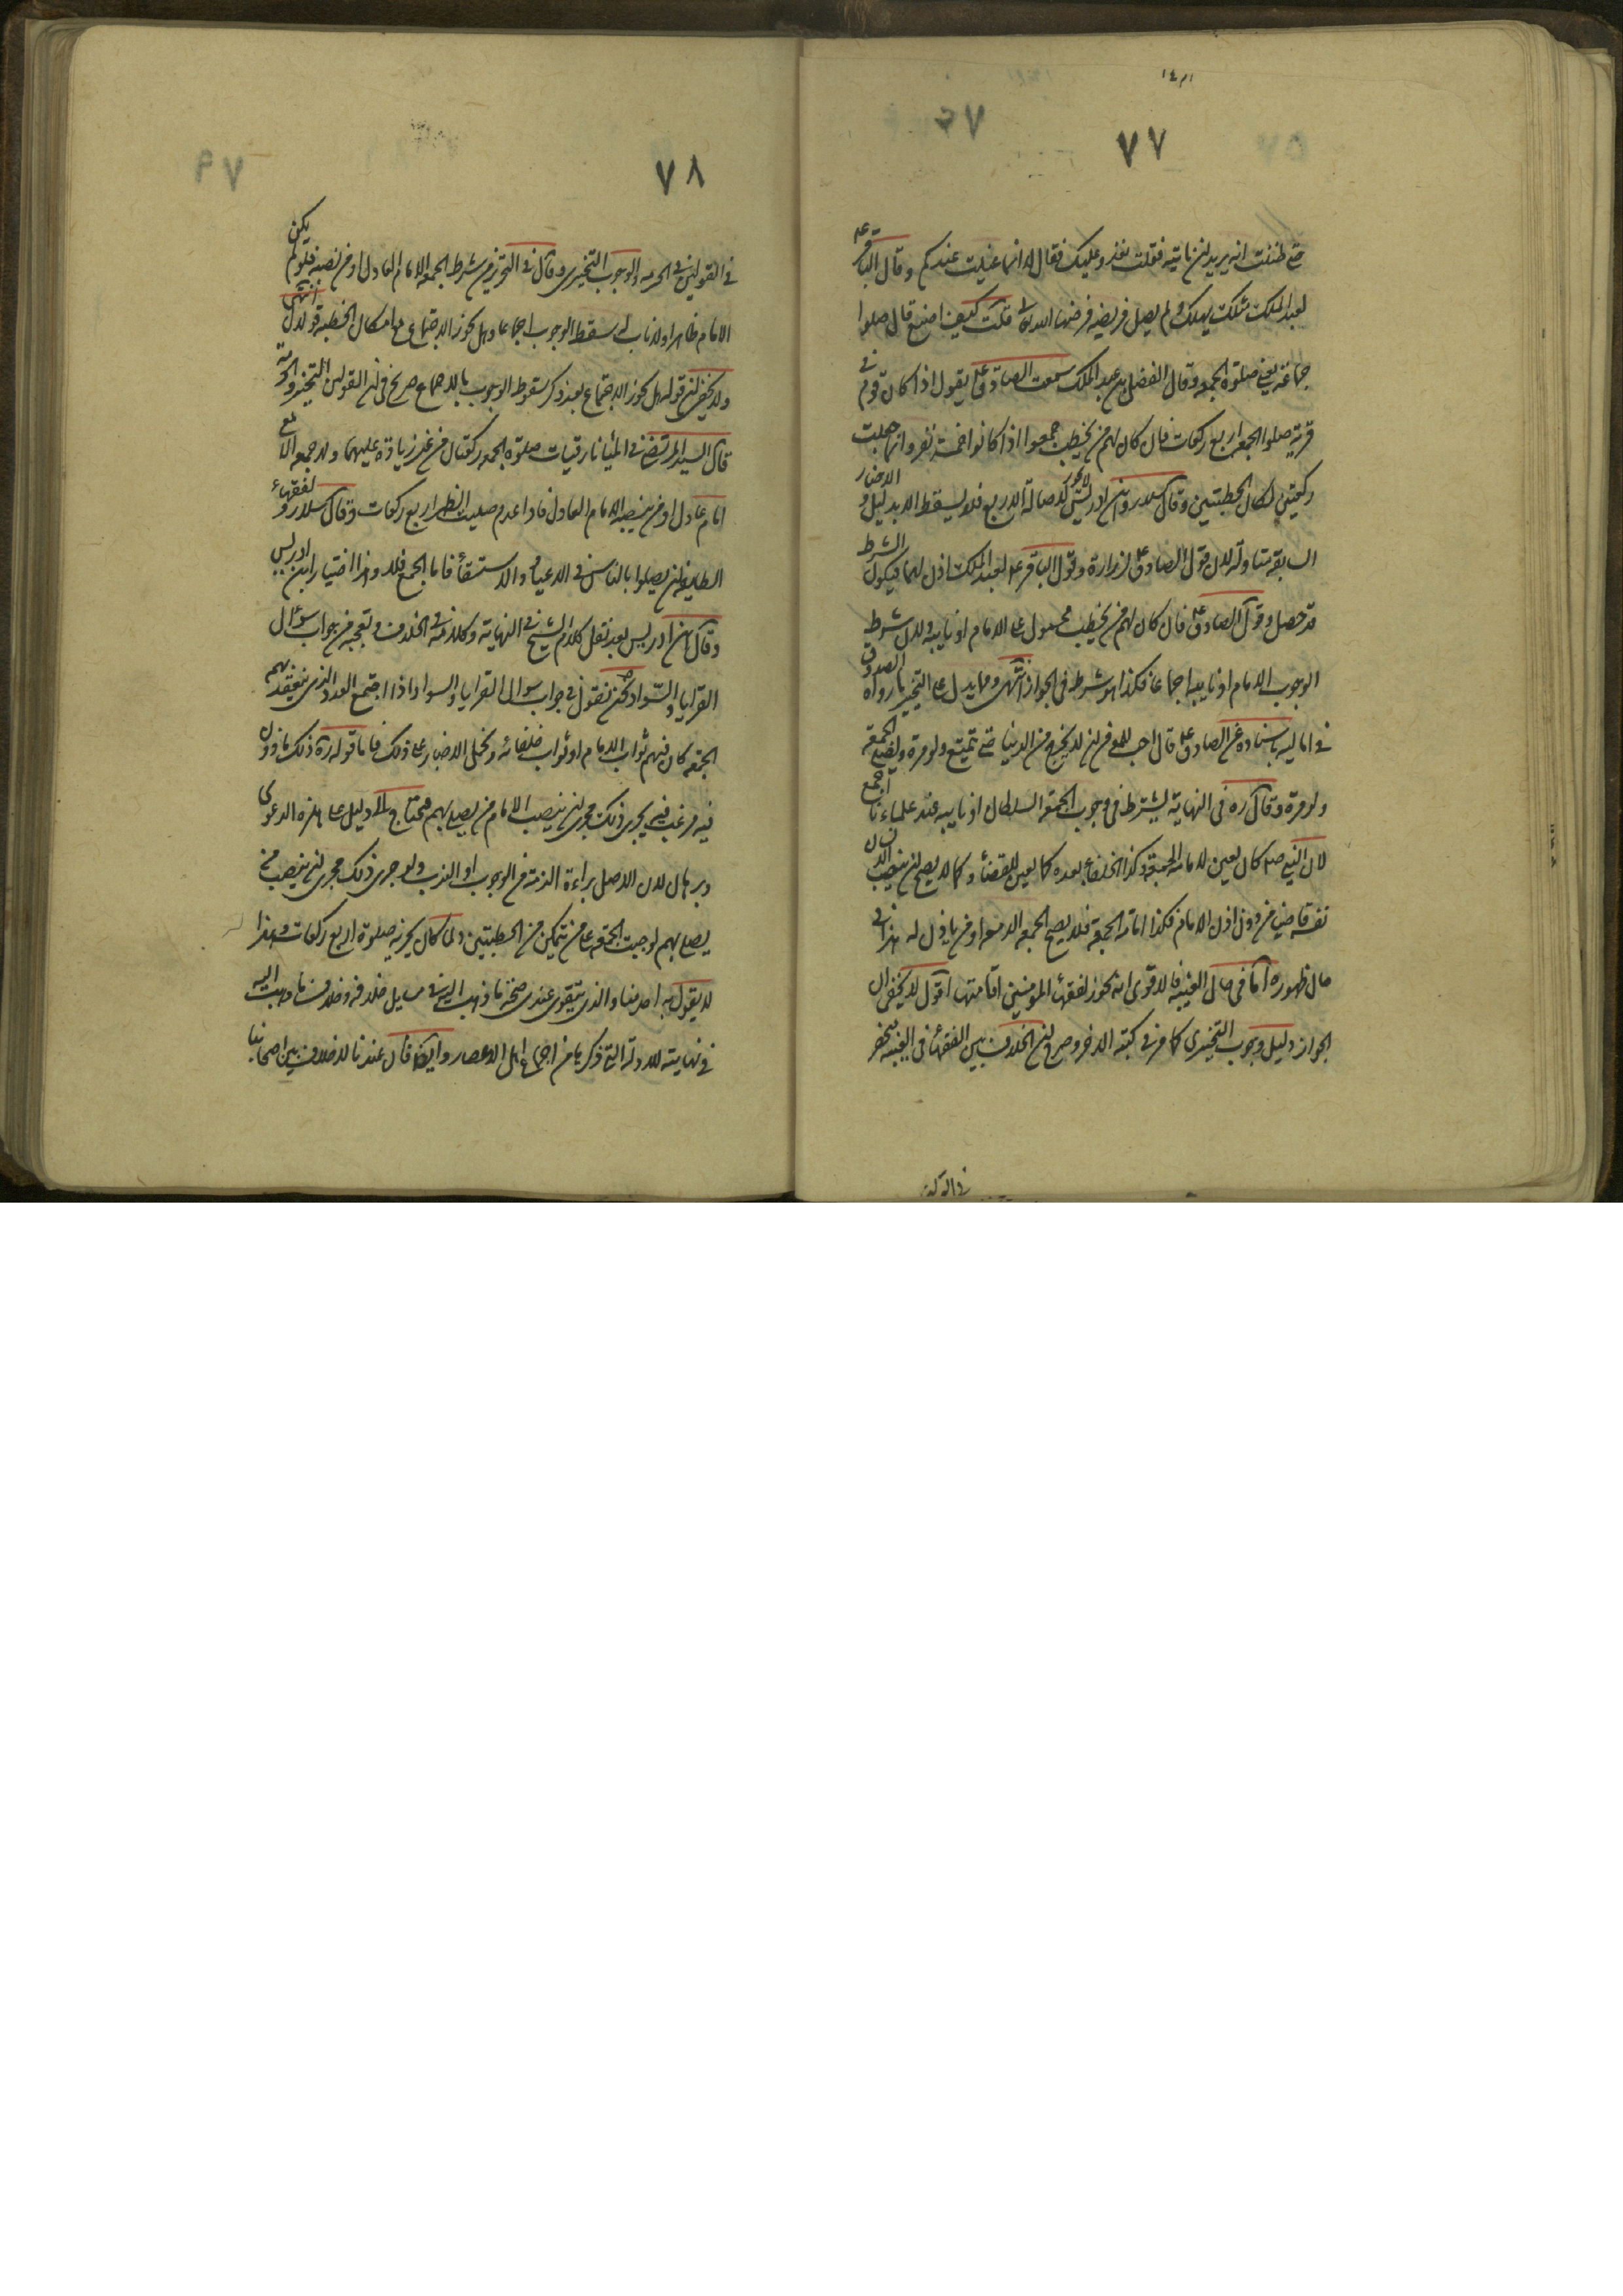 ٧٧
حتى ظننت انه يريد ان ناتيه فقلت نغدو عليك فقال لا انما عنيت عندكم وقال الباقر ع
لعبد الملك مثلك يهلك ولم يصل فريضة فرضها الله تعالى قلت كيف اصنع قال صلوا
جماعة يعنى صلوة الجمعة وقال الفضل بن عبد الملك سمعت الصادق ع يقول اذا كان قوم في
قرية صلوا الجمعة اربع ركعات فان كان لهم من يخطب جمعوا اذا كانوا خمسة نفر وانما جعلت
ركعتين لمكان الخطبتين وقال سلار وابن ادريس لا يجوز لاصالة الاربع فلا يسقط الا بدليل والاخبار
السابقة متاولة لان قول الصادق ع لزرارة وقول الباقر ع لعبد الملك اذن لهما فيكون الشرط
قد حصل وقول الصادق ع فان كان لهم من يخطب محمول على الامام او نايبه ولان شرط
الوجوب الامام او نايبه اجماعا فكذا هو شرط في الجواز انتهى ومما يدل على التخيير ما رواه الصدوق
في اماليه باسناده عن الصادق ع قال احب للمؤمن ان لا يخرج من الدنيا حتى يتمتع ولو مرة ويصلى الجمعة
ولو مرة وقال ره في النهاية يشترط في وجوب الجمعة السلطان او نايبه عند علماءنا اجمع
لان النبي صلم كان يعين لامامة الجمعة وكذا الخلفاء بعده كما يعين للقضاء وكما لا يصح ان ينصب الانسان
نفسه قاضيا من دون اذن الامام فكذا امامة الجمعة فلا يصح الجمعة الا معه او من ياذن له هذا في
حال ظهوره اما في حال الغيبة فالاقوى انه يجوز لفقهاء المؤمنين اقامتها اقول لا يخفى ان
الجواز دليل وجوب التخييرى كما مر في كتبه الاخر وصرح ان الخلاف بين الفقهاء في الغيبة منحصر
٧٨
في القولين في الحرمة والوجوب التخييرى وقال في التحرير من شرط الجمعة الامام العادل او من نصبه فلو لم يكن
الامام ظاهرا ولا نايب له سقط الوجوب اجماعا وهل يجوز الاجتماع مع امكان الخطبة قولان انتهى
ولا يخفى ان قوله هل يجوز الاجتماع بعد ذكر سقوط الوجوب بالاجماع صريح في ان القولين التخيير والحرمة
قال السيد المرتضى في الميافارقيات صلوة الجمعة ركعتان من غير زيادة عليهما ولا جمعة الا مع
امام عادل او من ينصبه الامام العادل فاذا عدم صليت الظهر اربع ركعات وقال سلار ولفقهاء
الطايفة ان يصلوا بالناس في الاعياد والاستسقاء فاما الجمع فلا وهذا اختيار ابن ادريس
وقال ابن ادريس بعد نقل كلام الشيخ في النهاية وكلامه في الخلاف وتعجبه من جواب سؤال
القرايا والسواد نحن نقول في جواب سوال القرايا والسواد اذا اجتمع العدد الذى ينعقد بهم
الجمعة كان فيهم نواب الامام او نواب خلفائه ونحمل الاخبار على ذلك فاما قوله ره ذلك ماذون
فيه مرغب فيه يجرى ذلك مجرى ان ينصب الامام من يصلى بهم محتاج الى دليل على هذه الدعوى
وبرهان لان الاصل براءة الذمة من الوجوب او الندب ولو جرى ذلك مجرى ان ينصب من
يصلى بهم لوجبت الجمعة على من يتمكن من الخطبتين ولما كان يجزيه صلوة اربع ركعات وهذا
لا يقول به احد منا والذى يتقوى عندى صحة ما ذهب اليه في مسايل خلافه وخلاف ما ذهب اليه
في نهايته للادلة التي ذكرها من اجماع اهل الاعصار وايضا فان عندنا لا خلاف بين اصحابنا